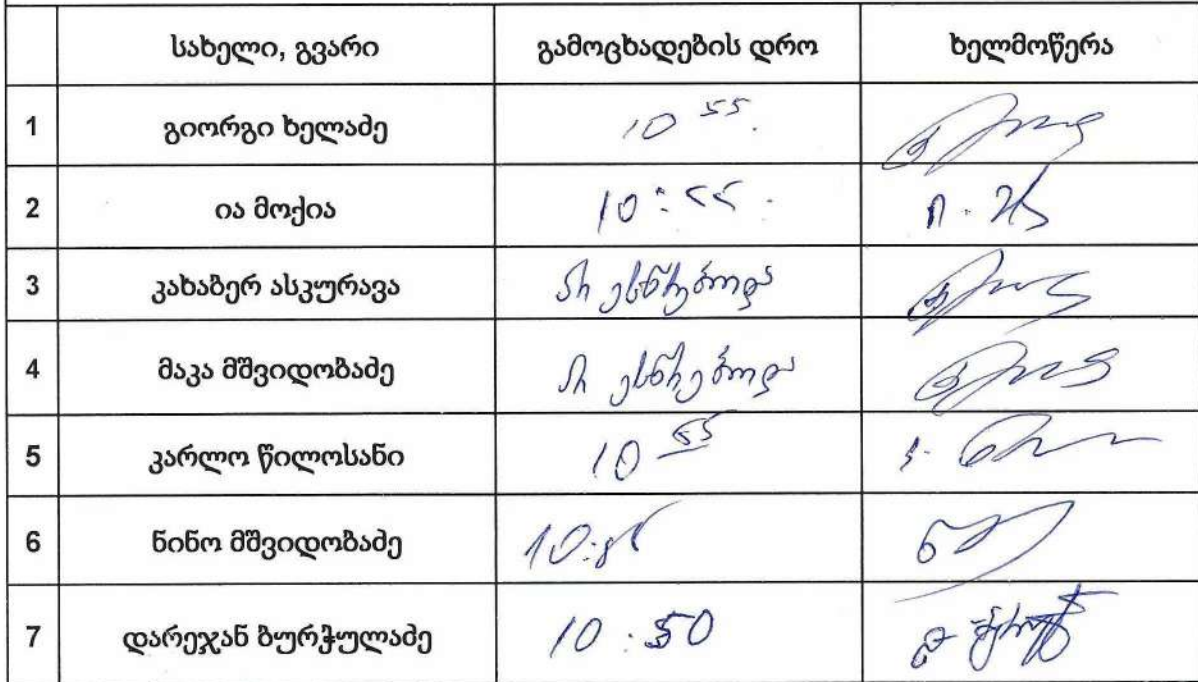 სახელი, გვარი გამოცხადების დრო ხელმოწერა
1 გიორგი ხელაძე 10 55
2 ია მოქია 10:55
3 კახაბერ ასკურავა არ ესწრებოდა
4 მაკა მშვიდობაძე არ ესწრებოდა
5 კარლო წილოსანი 10 55
6 ნინო მშვიდობაძე
7 დარეჯან ბურჭულაძე 10:50